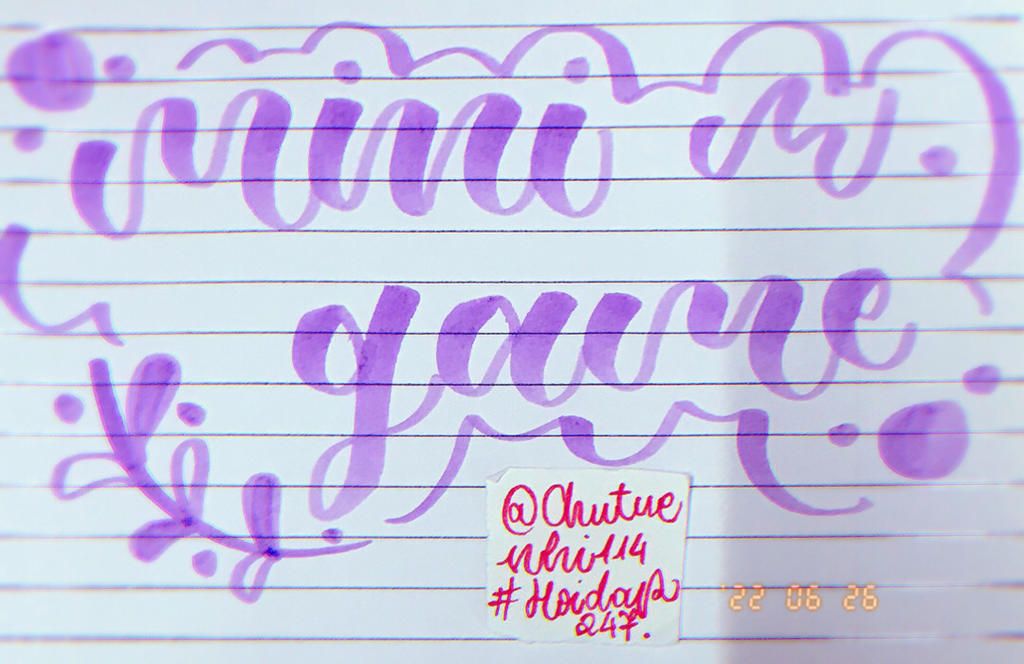 mini
game
@Chutue
nhi1114
#Hoidap
247.
'22 06 26